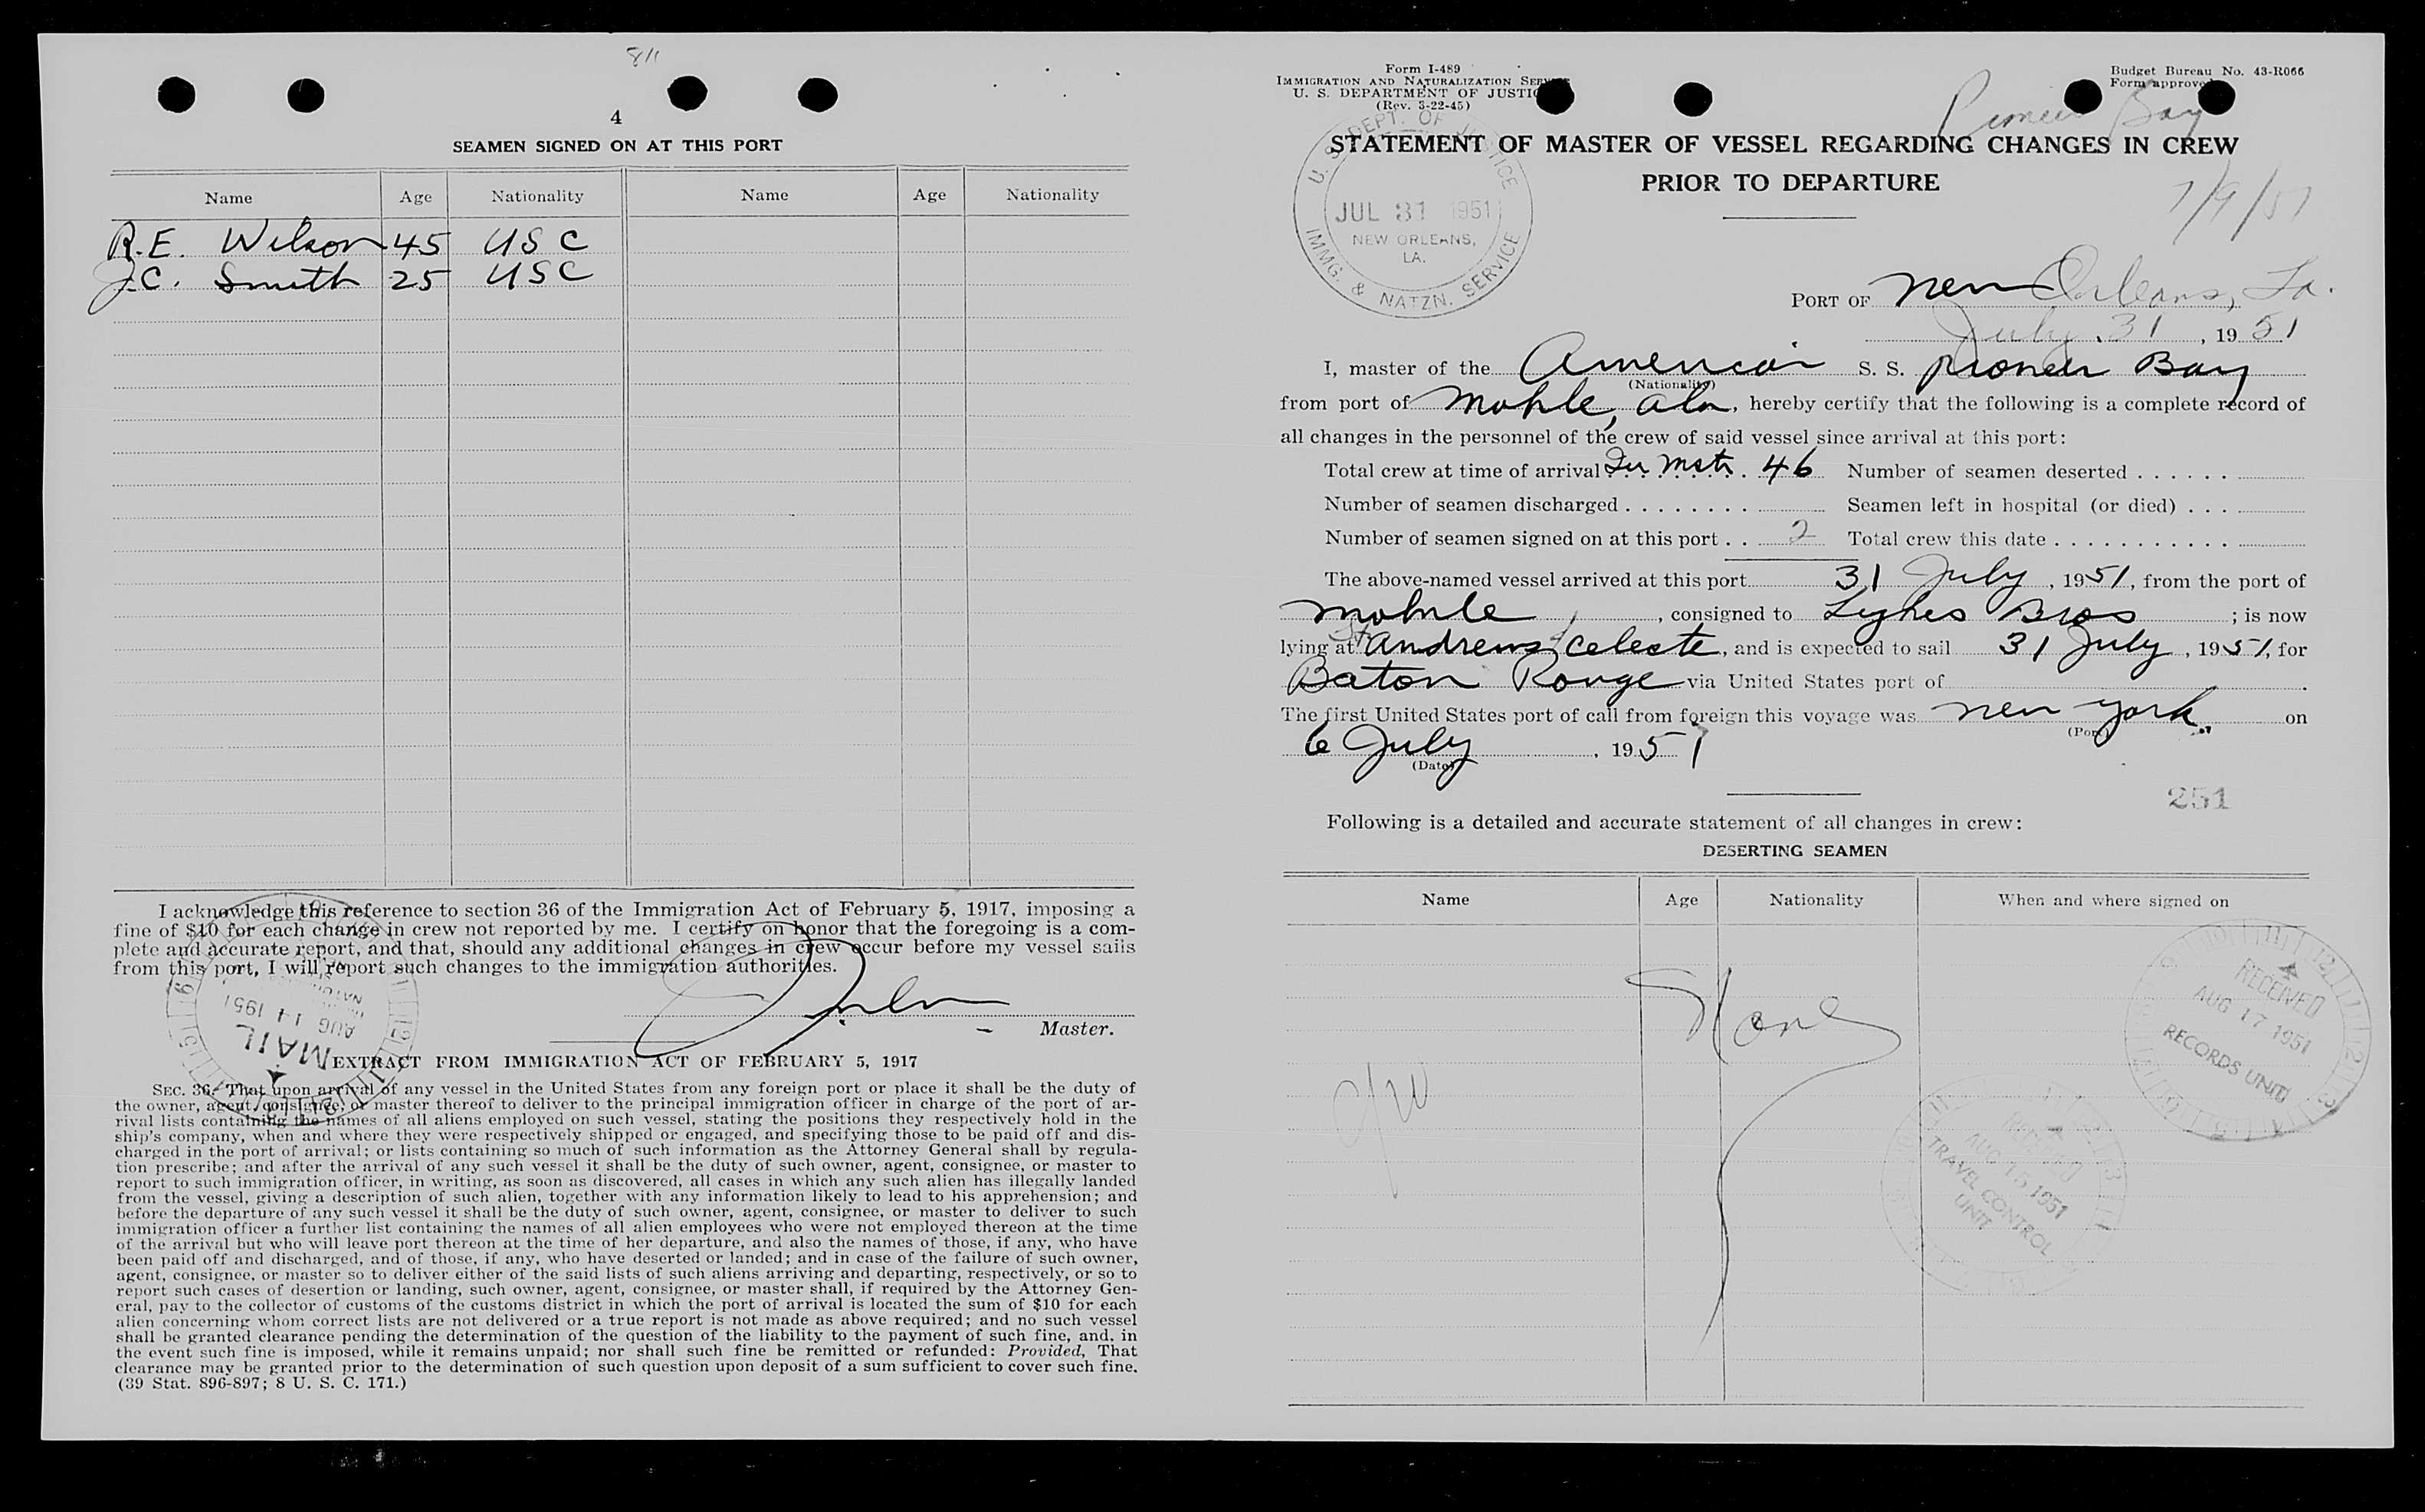 811
4
SEAMEN SIGNED ON AT THIS PORT
Name Age Nationality Name Age Nationality
R.E. Wilson 45 USC
J.C. Smith 25 USC
I acknowledge this reference to section 36 of the Immigration Act of February 5, 1917, imposing a
fine of $10 for each change in crew not reported by me. I certify on honor that the foregoing is a com-
plete and accurate report, and that, should any additional changes in crew occur before my vessel sails
from this port, I will report such changes to the immigration authorities.
Master.
MAIL
AUG 14 1951
EXTRACT FROM IMMIGRATION ACT OF FEBRUARY 5, 1917
SEC. 36. That upon arrival of any vessel in the United States from any foreign port or place it shall be the duty of
the owner, agent, consignee, or master thereof to deliver to the principal immigration officer in charge of the port of ar-
rival lists containing the names of all aliens employed on such vessel, stating the positions they respectively hold in the
ship's company, when and where they were respectively shipped or engaged, and specifying those to be paid off and dis-
charged in the port of arrival; or lists containing so much of such information as the Attorney General shall by regula-
tion prescribe; and after the arrival of any such vessel it shall be the duty of such owner, agent, consignee, or master to
report to such immigration officer, in writing, as soon as discovered, all cases in which any such alien has illegally landed
from the vessel, giving a description of such alien, together with any information likely to lead to his apprehension; and
before the departure of any such vessel it shall be the duty of such owner, agent, consignee, or master to deliver to such
immigration officer a further list containing the names of all alien employees who were not employed thereon at the time
of the arrival but who will leave port thereon at the time of her departure, and also the names of those, if any, who have
been paid off and discharged, and of those, if any, who have deserted or landed; and in case of the failure of such owner,
agent, consignee, or master so to deliver either of the said lists of such aliens arriving and departing, respectively, or so to
report such cases of desertion or landing, such owner, agent, consignee, or master shall, if required by the Attorney Gen-
eral, pay to the collector of customs of the customs district in which the port of arrival is located the sum of $10 for each
alien concerning whom correct lists are not delivered or a true report is not made as above required; and no such vessel
shall be granted clearance pending the determination of the question of the liability to the payment of such fine, and, in
the event such fine is imposed, while it remains unpaid; nor shall such fine be remitted or refunded: Provided, That
clearance may be granted prior to the determination of such question upon deposit of a sum sufficient to cover such fine.
(39 Stat. 896-897; 8 U. S. C. 171.)
Form I-489
IMMIGRATION AND NATURALIZATION SERVICE
U. S. DEPARTMENT OF JUSTICE
(Rev. 3-22-45)
Budget Bureau No. 43-R066
Form approved
Pioneer Bay
STATEMENT OF MASTER OF VESSEL REGARDING CHANGES IN CREW
PRIOR TO DEPARTURE
7/9/51
U. S. DEPT. OF JUSTICE
JUL 31 1951
NEW ORLEANS,
LA.
IMMG. & NATZN. SERVICE
PORT OF New Orleans, La.
July 31, 1951
I, master of the American S. S. Pioneer Bay
(Nationality)
from port of Mobile, Ala, hereby certify that the following is a complete record of
all changes in the personnel of the crew of said vessel since arrival at this port:
Total crew at time of arrival Mstr. 46 Number of seamen deserted
Number of seamen discharged Seamen left in hospital (or died)
Number of seamen signed on at this port 2 Total crew this date
The above-named vessel arrived at this port 31 July, 1951, from the port of
Mobile, consigned to Lykes Bros; is now
lying at St Andrews & Celeste, and is expected to sail 31 July, 1951, for
Baton Rouge via United States port of
The first United States port of call from foreign this voyage was New York on
(Port)
6 July, 1951
(Date)
251
Following is a detailed and accurate statement of all changes in crew:
DESERTING SEAMEN
Name Age Nationality When and where signed on
None
RECEIVED
AUG 17 1951
RECORDS UNIT
RECEIVED
AUG 15 1951
TRAVEL CONTROL
UNIT